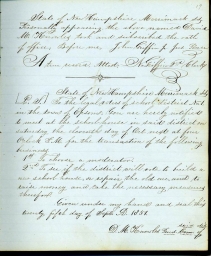 State of New Hampshire Merrimack
Personally appearing the above named David
M. Knowles and subscribed the oath
of office Before me John Giffin Jus Peace
A true record Attest Giffin Clerk
State of New Hampshire Merrimack
To the legal voters of school District No
in the town of Epsom You are hereby notified
to meet at the schoolhouse in said district on
Saturday the eleventh day of Oct next at four
O'clock P.M. for the transaction of the following
business
1st To choose a moderator
2d To see if the district will vote to build a
new school house, or repair the old one and to
raise money and take the necessary measures
therefor
Given under my hand and seal this
twenty fifth day of Sept. A.D. 1851
D. M. Knowles